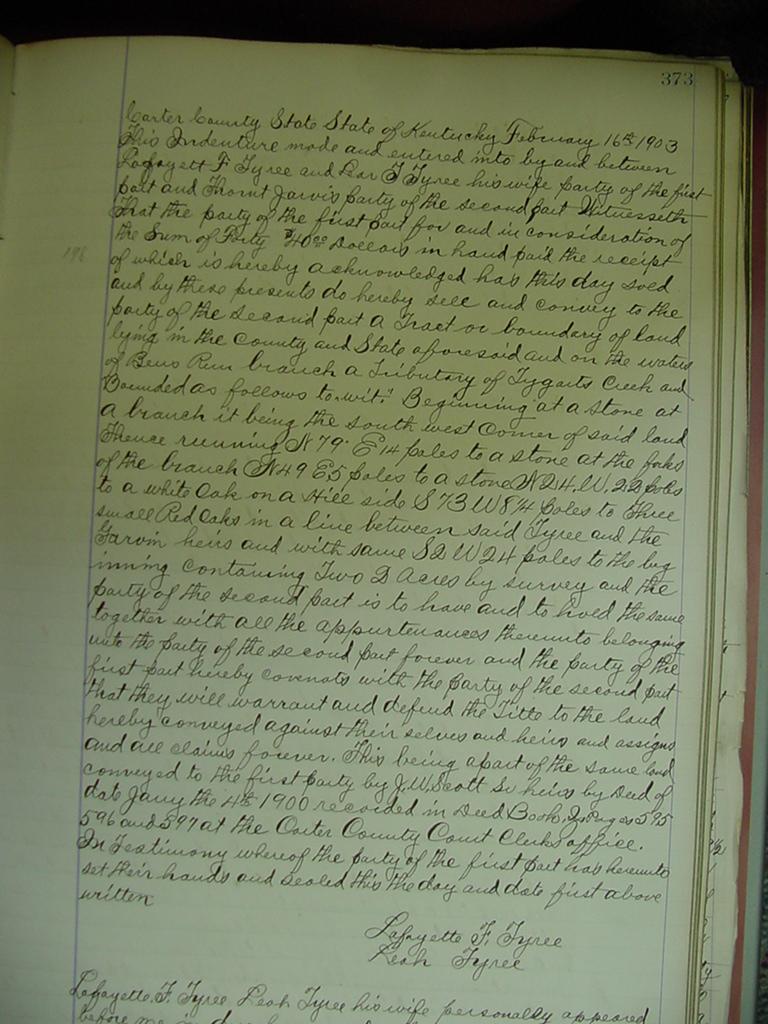 373
Carter County State State of Kentucky February 16th 1903
This Indenture made and entered into by and between
Lafayett F. Tyree and Lear T Tyree his wife party of the first
part and Thornt Jarvis party of the second part Witnesseth
That the party of the first part for and in consideration of
the Sum of Forty $40.00 Dollars in hand paid the receipt
of which is hereby acknowledged has this day sold
and by these presents do hereby sell and convey to the
party of the second part a Tract or boundary of land
lying in the County and State aforesaid and on the waters
of Bens Run branch a Tributary of Tygarts Creek and
Bounded as follows to-wit: Beginning at a Stone at
a branch it being the south west corner of said land
Thence running N 79 E 14 poles to a stone at the forks
of the branch N 49 E 5 poles to a stone N 24. W. 22 poles
to a white Oak on a Hill side S 73 W 8 1/4 poles to Three
small Red Oaks in a line between said Tyree and the
Garvin heirs and with same S 2 W 24 poles to the beg
inning containing Two 2 Acres by survey and the
party of the second part is to have and to hold the same
together with all the appurtenances thereunto belonging
unto the party of the second part forever and the party of the
first part hereby covenats with the party of the second part
that they will warrant and defend the Title to the land
hereby conveyed against their selves and heirs and assigns
and all claims forever. This being a part of the same land
conveyed to the first party by J. W. Scott Sr heirs by Deed of
date Jany the 4th 1900 recorded in Deed Book Pages 595
596 and 597 at the Carter County Court Clerks office.
In Testimony whereof the party of the first part has hereunto
set their hands and sealed this the day and date first above
written
Lafayette F. Tyree
Leah Tyree
Lafayette. F. Tyree Leah Tyree his wife personally appeared
before me